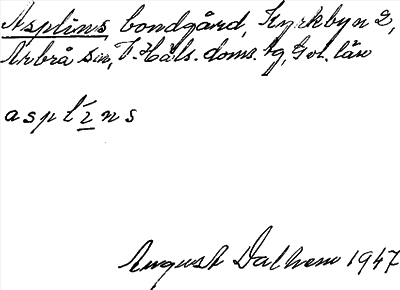 Asplins, bondgård, Kyrkbyn 2,
Arbrå sn, V. Häls. doms. tg, Gvl. län
aspli̱ns
August Dalhem 1947